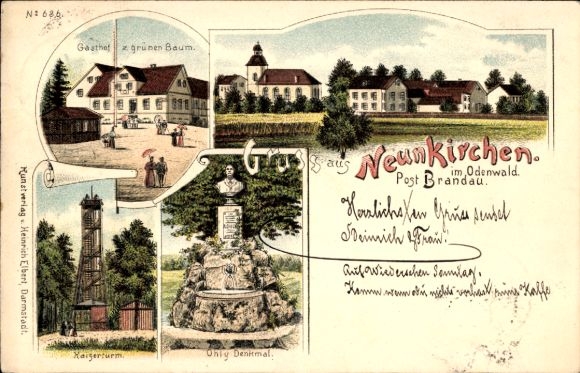 No 686.
Gasthof z. grünen Baum.
Gruss aus
Neunkirchen.
im Odenwald.
Post Brandau.
Herzlichsten Gruss sendet
Heinrich & Frau.
Auf Wiedersehen Sonntag.
Komm wenn du nichts zum Kaffe
Kaiserturm.
Ohly Denkmal.
Kunstverlag v. Heinrich Elbert, Darmstadt.